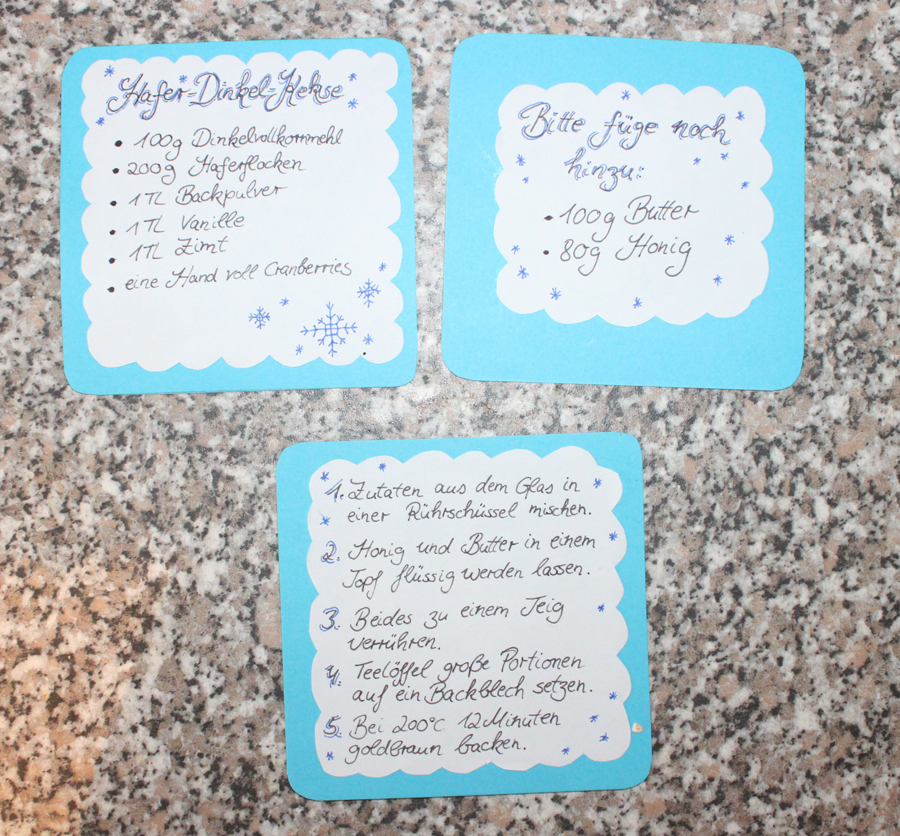 Hafer-Dinkel-Kekse
• 100g Dinkelvollkornmehl
• 200g Haferflocken
• 1 TL Backpulver
• 1 TL Vanille
• 1 TL Zimt
• eine Hand voll Cranberries
Bitte füge noch
hinzu:
• 100g Butter
• 80g Honig
1. Zutaten aus dem Glas in
einer Rührschüssel mischen.
2. Honig und Butter in einem
Topf flüssig werden lassen.
3. Beides zu einem Teig
verrühren.
4. Teelöffel große Portionen
auf ein Backblech setzen.
5. Bei 200°C 12 Minuten
goldbraun backen.